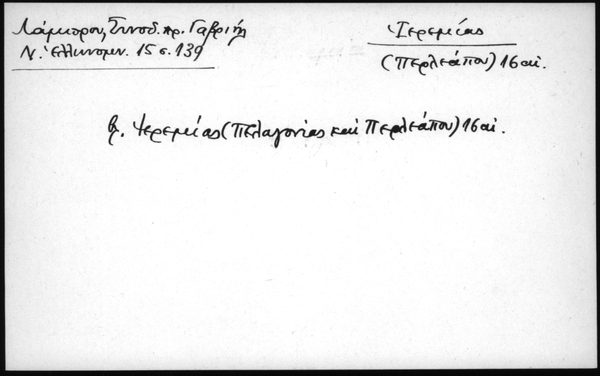 Λάμπρου, Συνοδ. πρ. Γαβριήλ
Ν. Ἑλληνομν. 15 σ. 139
Ἱερεμίας
(Περλεάπου) 16 αἰ.
β. Ἱερεμίας (Πελαγονίας καὶ Περλεάπου) 16 αἰ.